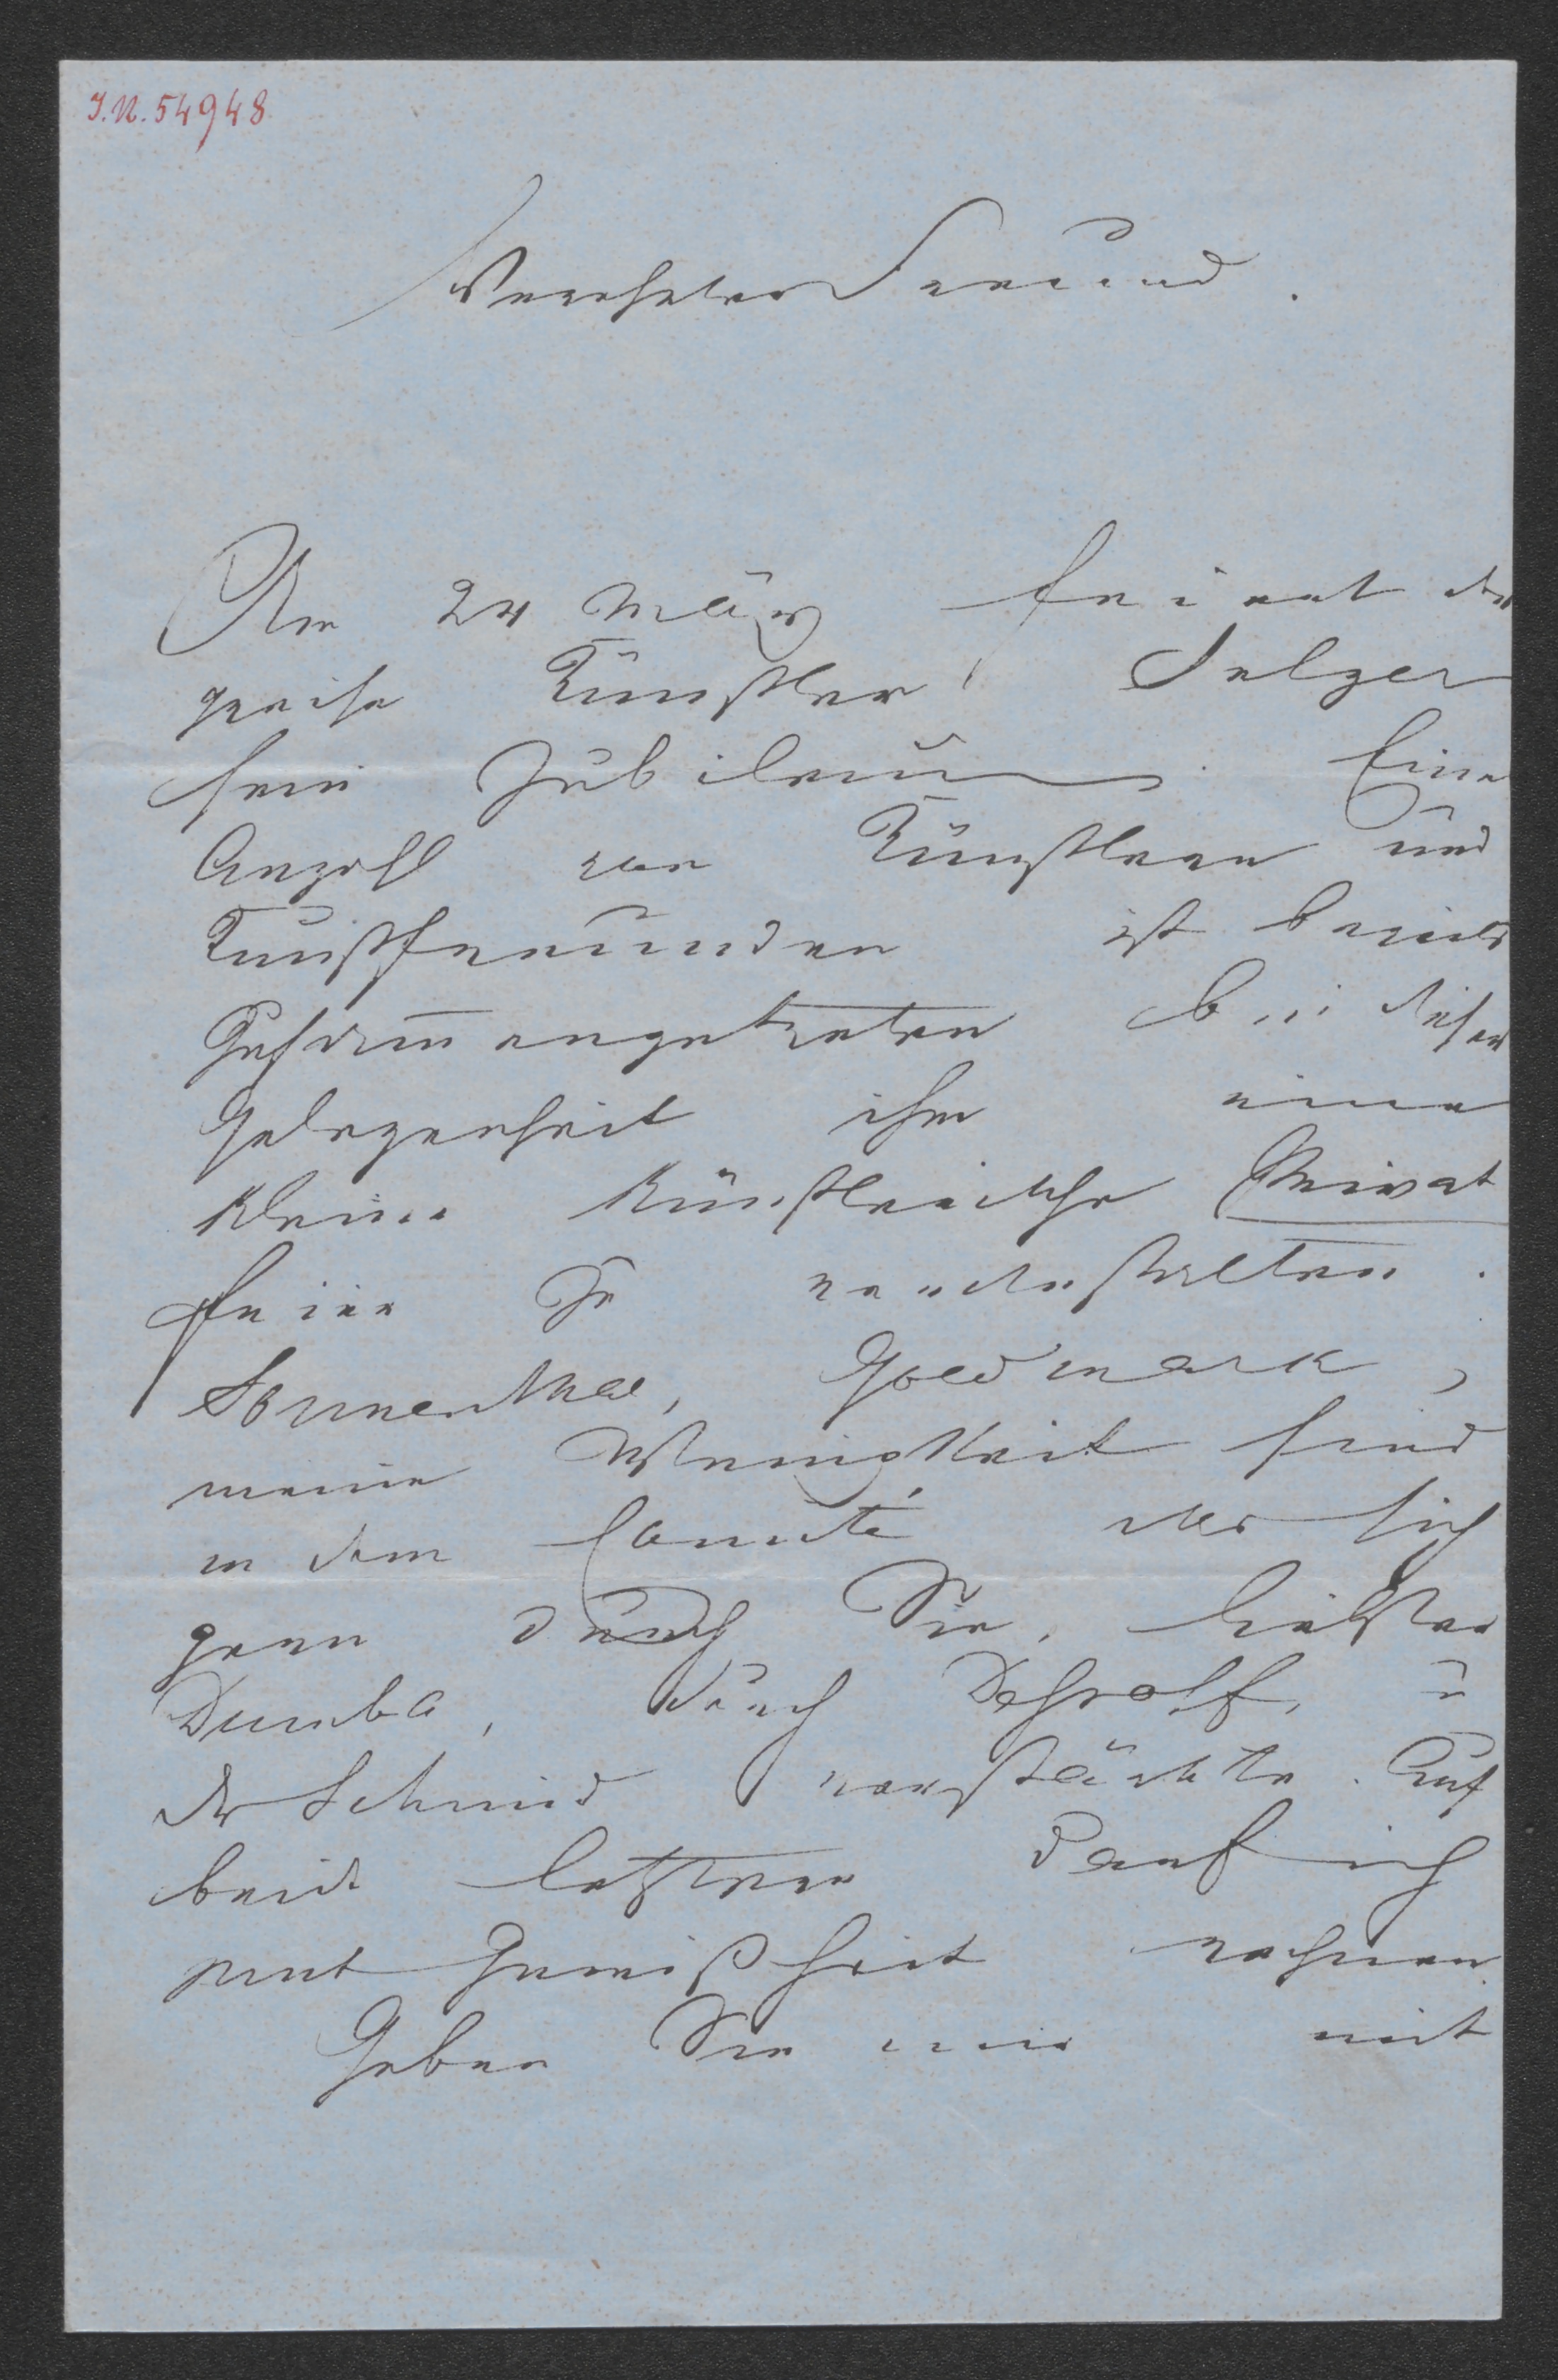 I.N. 54948
Verehrter Freund.
Am 24 März feiert der
greise Künstler Selzer
sein Jubileum. Eine
Anzahl von Künstlern und
Kunstfreunden ist bereits
zusam̅engetreten bei dieser
Gelegenheit ihm eine
kleine künstlerische Privat
feier zu veranstalten.
Sonnenthal, Goldmark,
meine Wenigkeit sind
in dem Comité das sich
gern durch Sie, liebster
Dumba, durch u
Dr Schmid verstärkte. Auf
beide letztere darf ich
mit Gewißheit rechnen.
Geben Sie mir mit